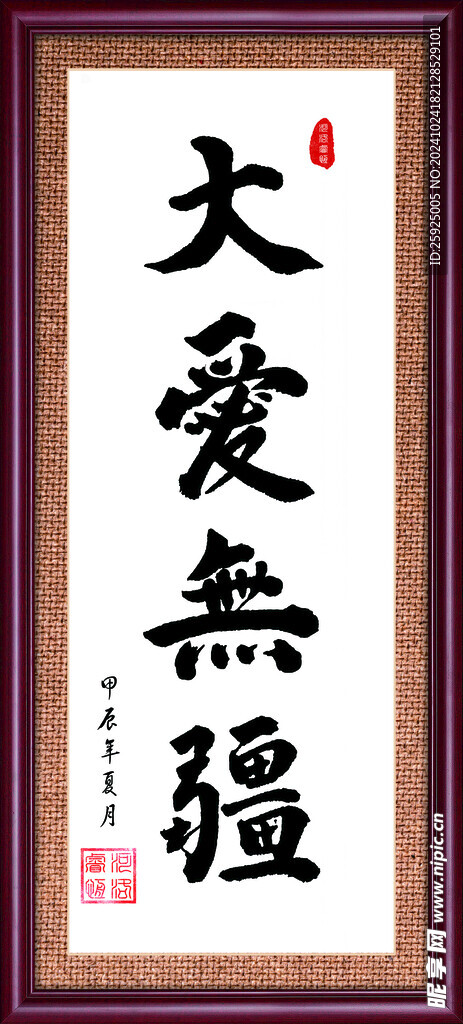 大愛無疆
甲辰年夏月
河洛
睿恆
ID:25925005 NO:20241024182128529101
昵享网 www.nipic.cn